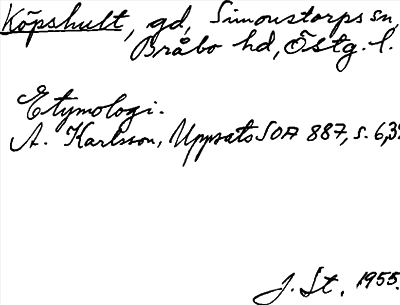 Köpshult, gd, Simonstorps sn,
Bråbo hd, Östg. l.
Etymologi.
A. Karlsson, Uppsats SOA 887, s. 6,
J. St. 1955.